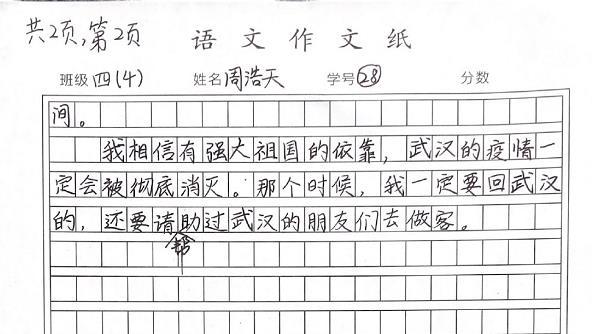 共2页,第2页 语文作文纸
班级 四(4) 姓名 周浩天 学号 28 分数
间。
我相信有强大祖国的依靠，武汉的疫情一
定会被彻底消灭。那个时候，我一定要回武汉
的，还要请助过武汉的朋友们去做客。
帮